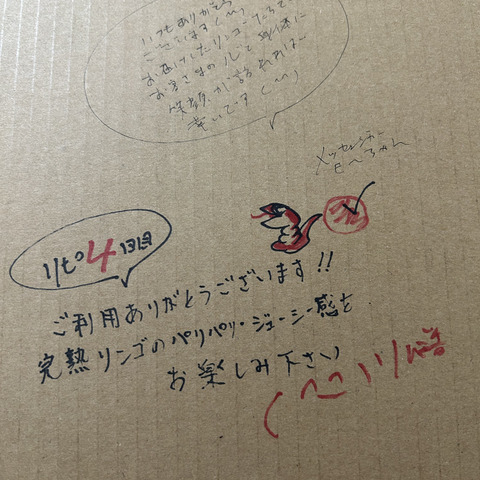 いつもありがとう
ございます(^^)
お届けしたリンゴ
お客さまの心と身体に
笑顔が訪れれば
幸いです(^^)
メッセンジャー
Eーちゃん
リピ4回目
ご利用ありがとうございます!!
完熟リンゴのパリパリ・ジューシー感を
お楽しみ下さい
(^-^)